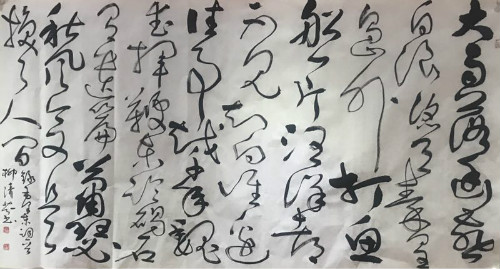 大雨落幽燕
白浪滔天秦皇
岛外打鱼
船一片汪洋都
不见知向谁边
往事越千年魏
武挥鞭东临碣石
有遗篇萧瑟
秋风今又是
换了人间
柳清